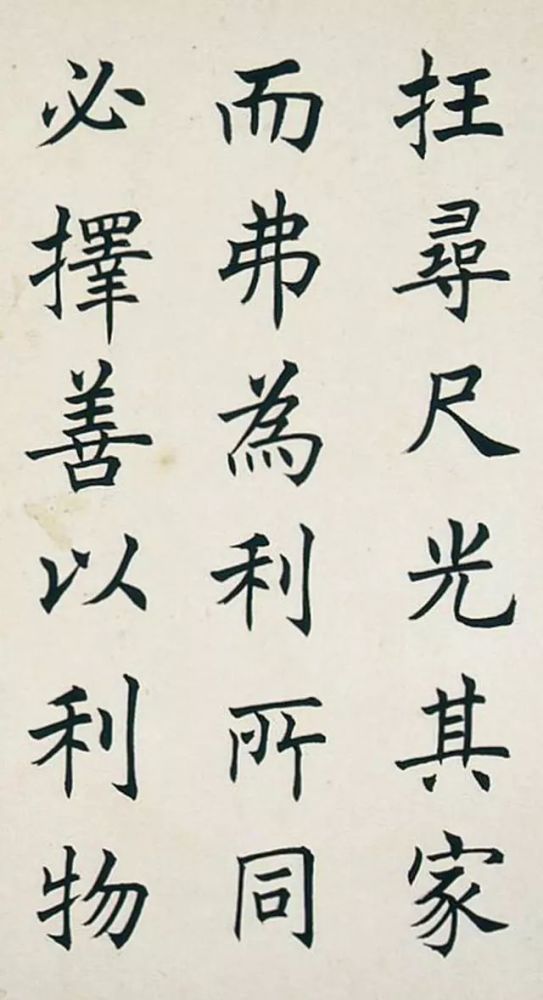 抂尋尺光其家
而弗為利所同
必擇善以利物